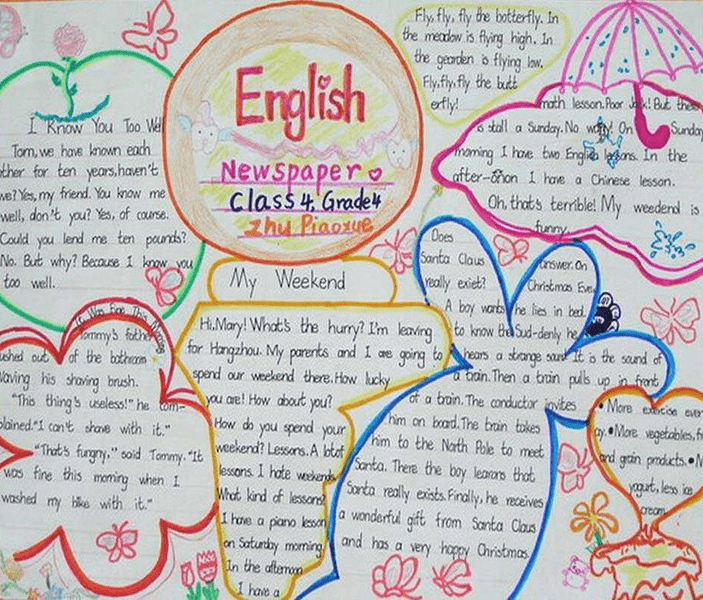 English
Newspaper
Class 4. Grade 4
Zhu Piaoxue
I Know You Too Well
Tom, we have known each
other for ten years, haven't
we? Yes, my friend. You know me
well, don't you? Yes, of course.
Could you lend me ten pounds?
No. But why? Because I know you
too well.
Fly, fly, fly the botterfly. In
the meadow is flying high. In
the gearden is flying low.
Fly, fly, fly the butt
erfly!
math lesson. Poor Jack! But there
is stall a Sunday. No worry! On Sunday
morning I have two English lessons. In the
after-ōnon I have a Chinese lesson.
Oh, that's terrible! My weedend is
funny.
My Weekend
Hi, Mary! What's the hurry? I'm leaving
for Hangzhou. My parents and I are going to
spend our weekend there. How lucky
you are! How about you?
How do you spend your
weekend? Lessons. A lot of
lessons. I hate weekends.
What kind of lessons?
I have a piano lesson
on Saturday morning.
In the afternoon
I have a
It Was Fine This Morning
Tommy's father
ushed out of the bathroom
waving his shaving brush.
"This thing's useless!" he com-
plained. "I can't shave with it."
"That's fungny," said Tommy. "It
was fine this morning when I
washed my bike with it."
Does
Santa Claus
really exiet?
A boy wants
to know the
answer. On
Christmas Eve,
he lies in bed.
Sud-denly he
hears a strange sound. It is the sound of
a train. Then a train pulls up in front
of a train. The conductor invites
him on board. The train takes
him to the North Pole to meet
Santa. There the boy learons that
Santa really exists. Finally, he receives
a wonderful gift from Santa Claus
and has a very happy Christmas.
• More exercise ever
ay. • More vegetables, fr
and grain products. • M
yogurt, less ice
cream.